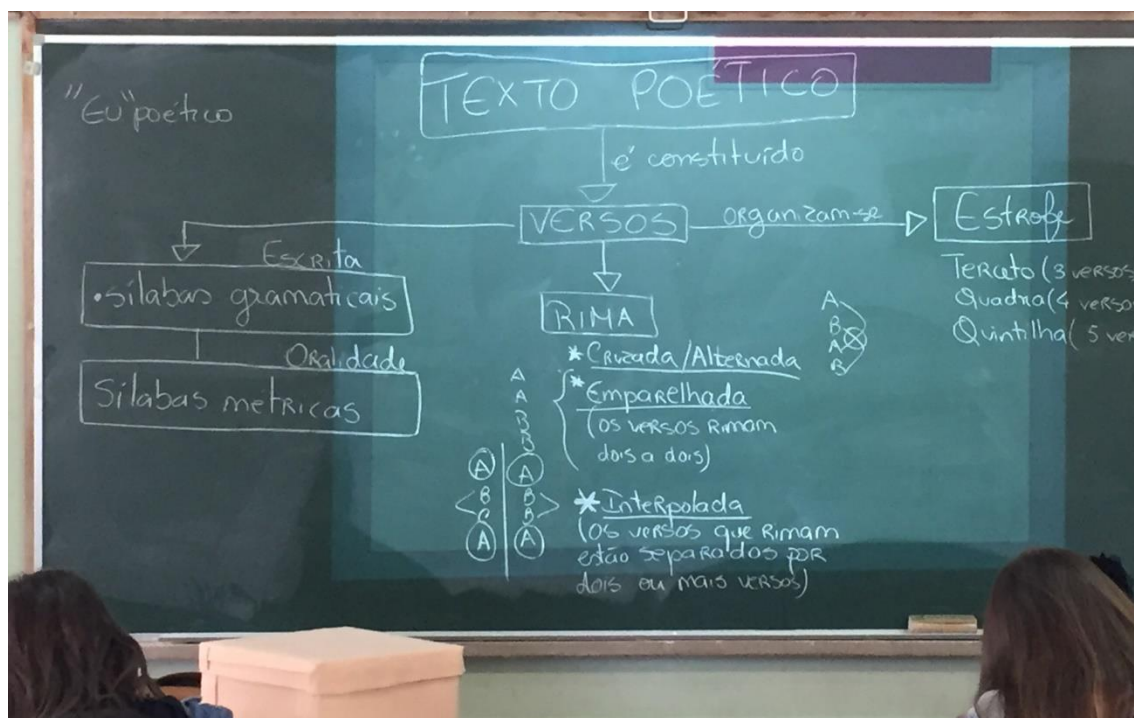 "Eu" poético
TEXTO POÉTICO
é constituído
VERSOS
organizam-se
Estrofe
Terceto (3 versos
Quadra (4 verso
Quintilha ( 5 ver
Escrita
• sílabas gramaticais
Oralidade
Sílabas metricas
RIMA
* Cruzada/Alternada
A
B
A
B
* Emparelhada
(os versos rimam
dois a dois)
A
A
B
B
* Interpolada
(os versos que rimam
estão separados por
dois ou mais versos)
A A
B B
C B
A A